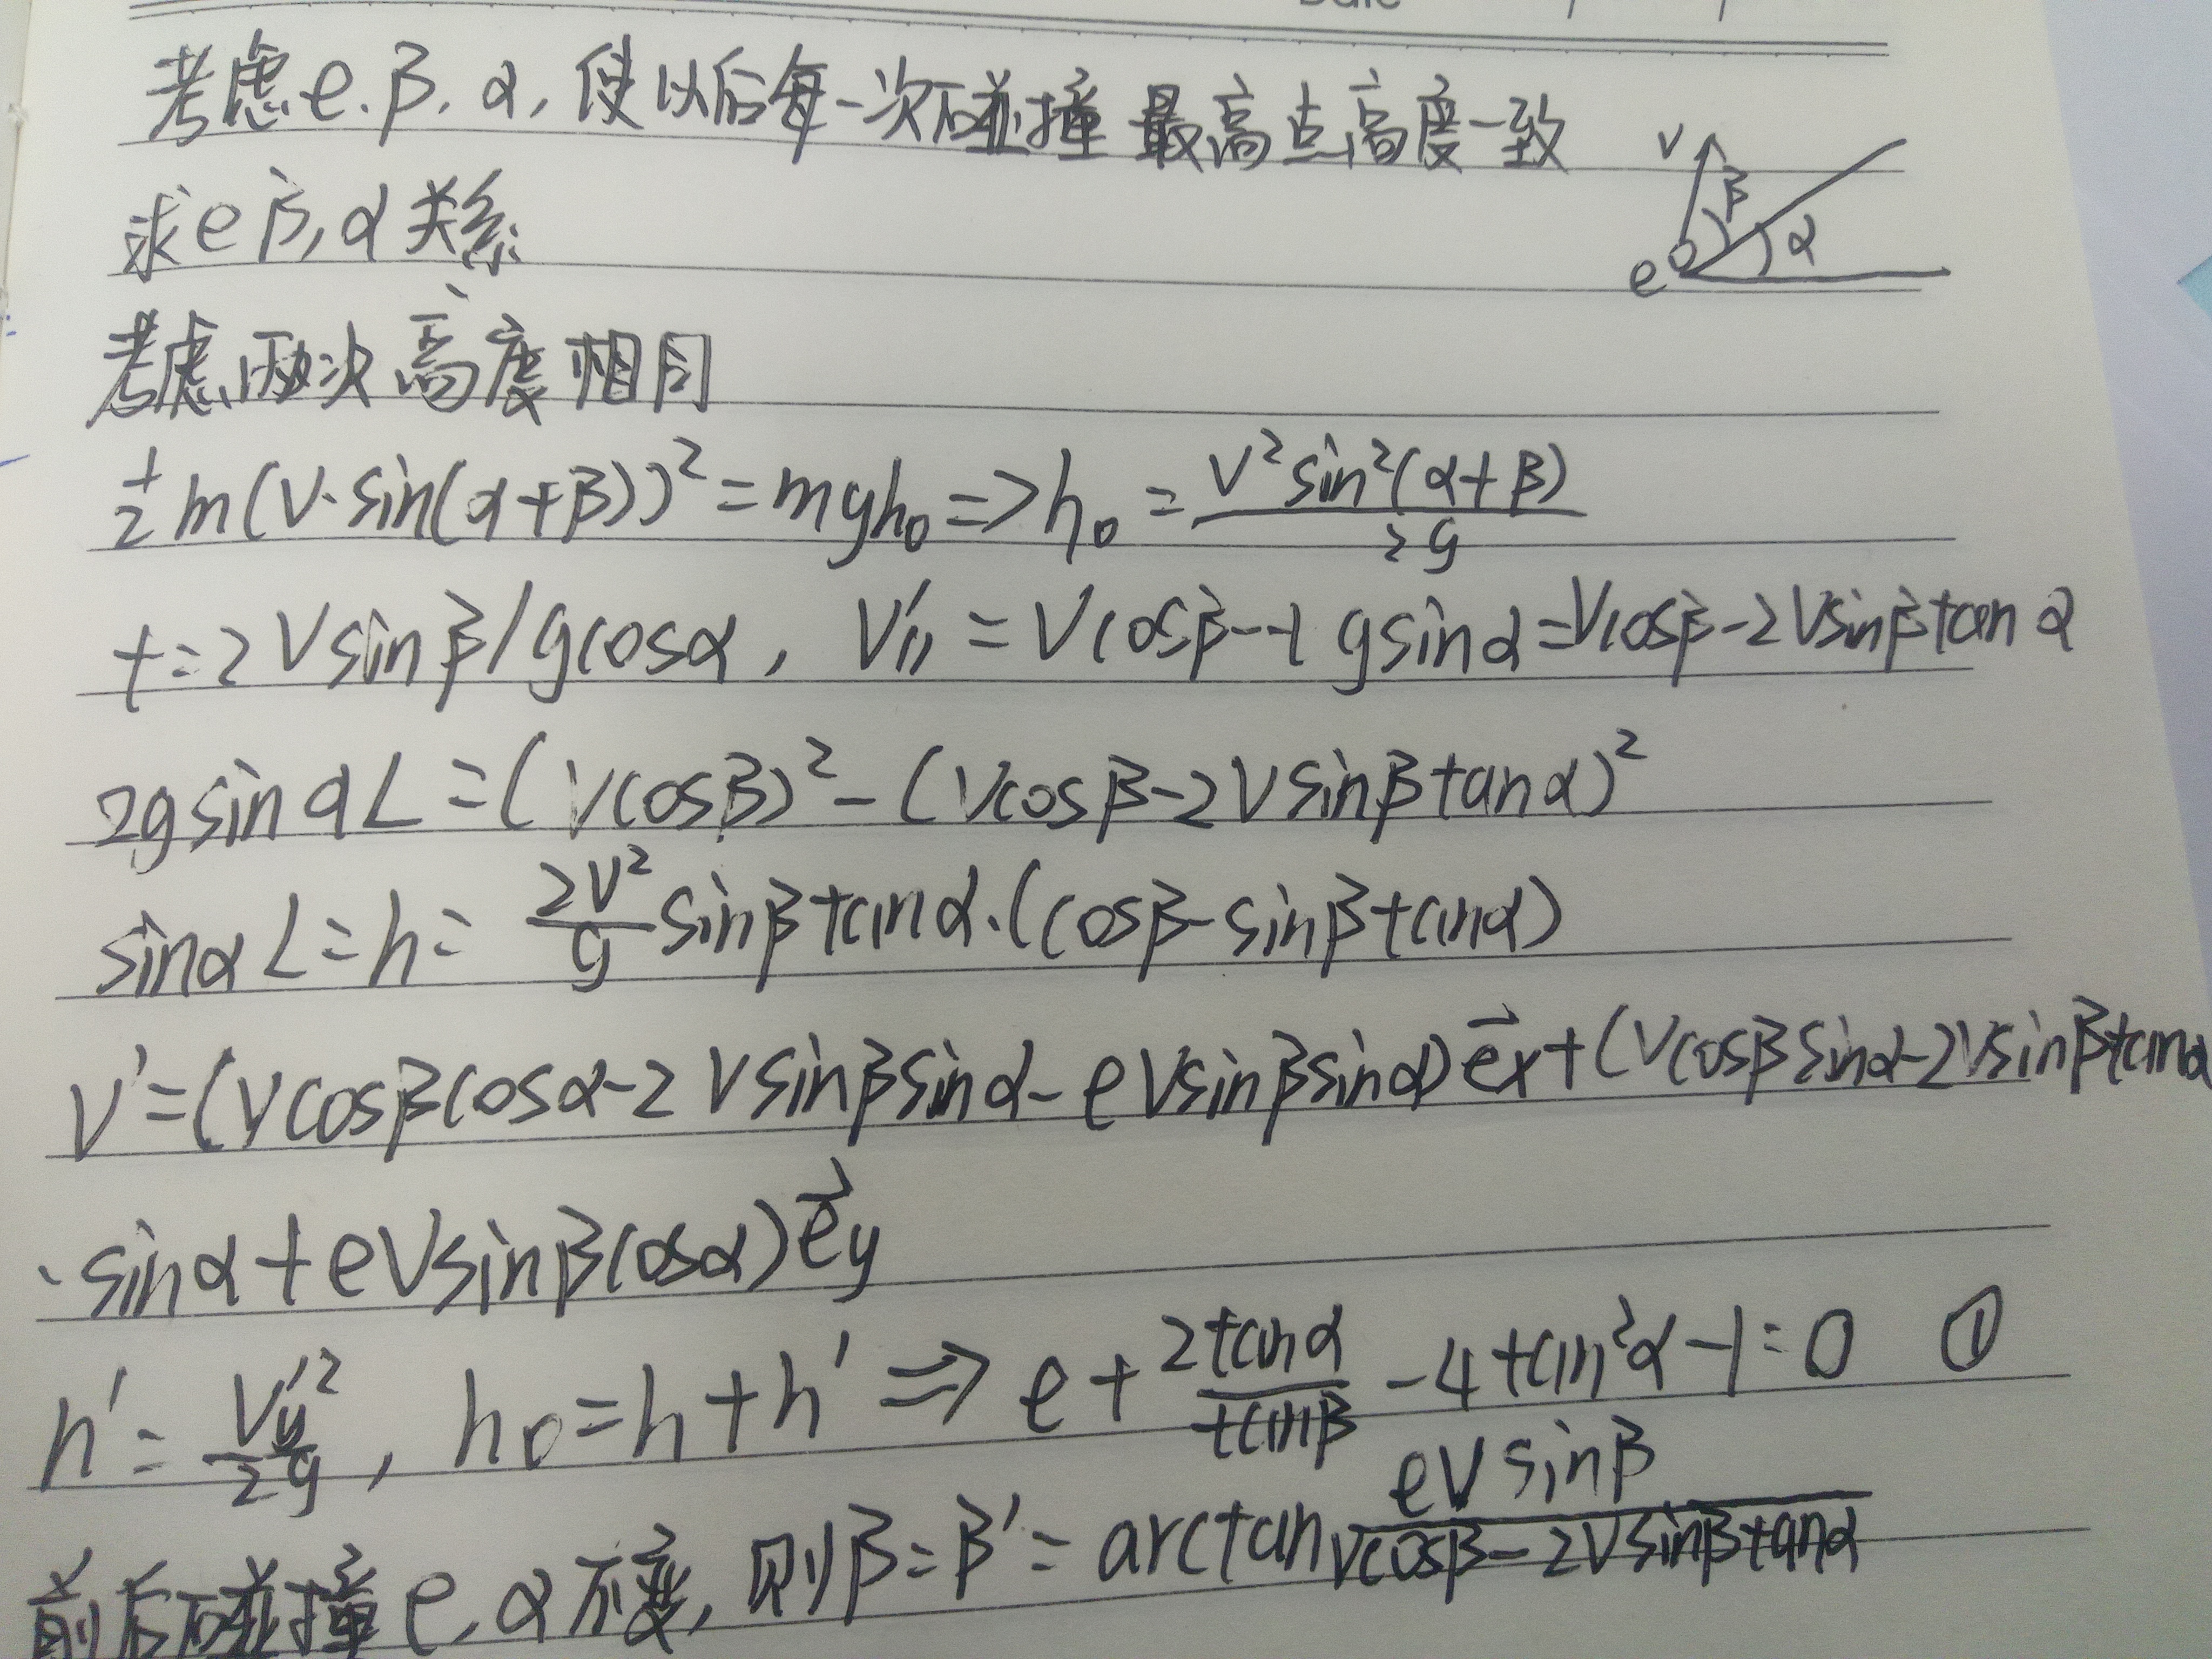 Date / /
考虑e.β.α,使以后每一次碰撞最高点高度一致
求eβ,α关系
V β α e
考虑两次高度相同
½m(V·sin(α+β))²=mgh₀=>h₀=V²sin²(α+β)/2g
t=2Vsinβ/gcosα, V'∥=Vcosβ-tgsinα=Vcosβ-2Vsinβtanα
2gsinαL=(Vcosβ)²-(Vcosβ-2Vsinβtanα)²
sinαL=h=2V²/g sinβtanα·(cosβ-sinβtanα)
V'=(Vcosβcosα-2Vsinβsinα-eVsinβsinα)e⃗x+(Vcosβsinα-2Vsinβtanα
·sinα+eVsinβcosα)e⃗y
h'=Vy'²/2g, h₀=h+h'⇒e+2tanα/tanβ-4tan²α-1=0 ①
前后碰撞e,α不变,则β=β'=arctan eVsinβ/Vcosβ-2Vsinβtanα